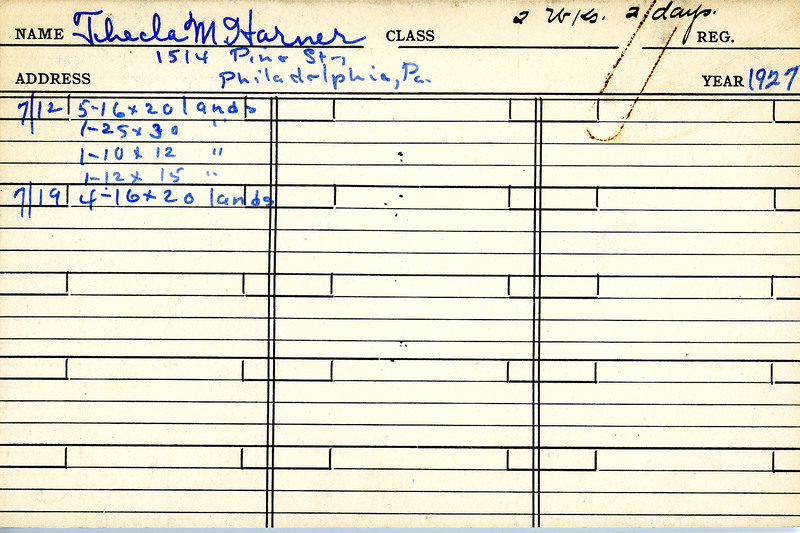 2 Wks. 2/days.
NAME Thecla M Harner CLASS REG.
1514 Pine St.,
ADDRESS Philadelphia, Pa. YEAR 1927
7/12 5-16x20 lands
1-25x30 "
1-10x12 "
1-12x15 "
7/19 4-16x20 lands